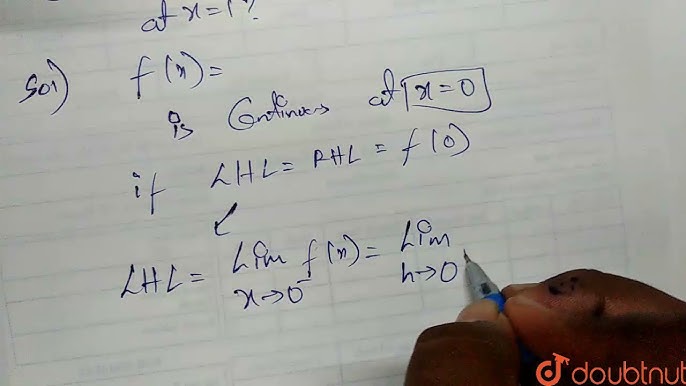 at x=1?
Sol) f(x)=
is Continuous at x=0
if LHL = RHL = f(0)
LHL = Lim f(x) = Lim
x→0⁻ h→0
doubtnut